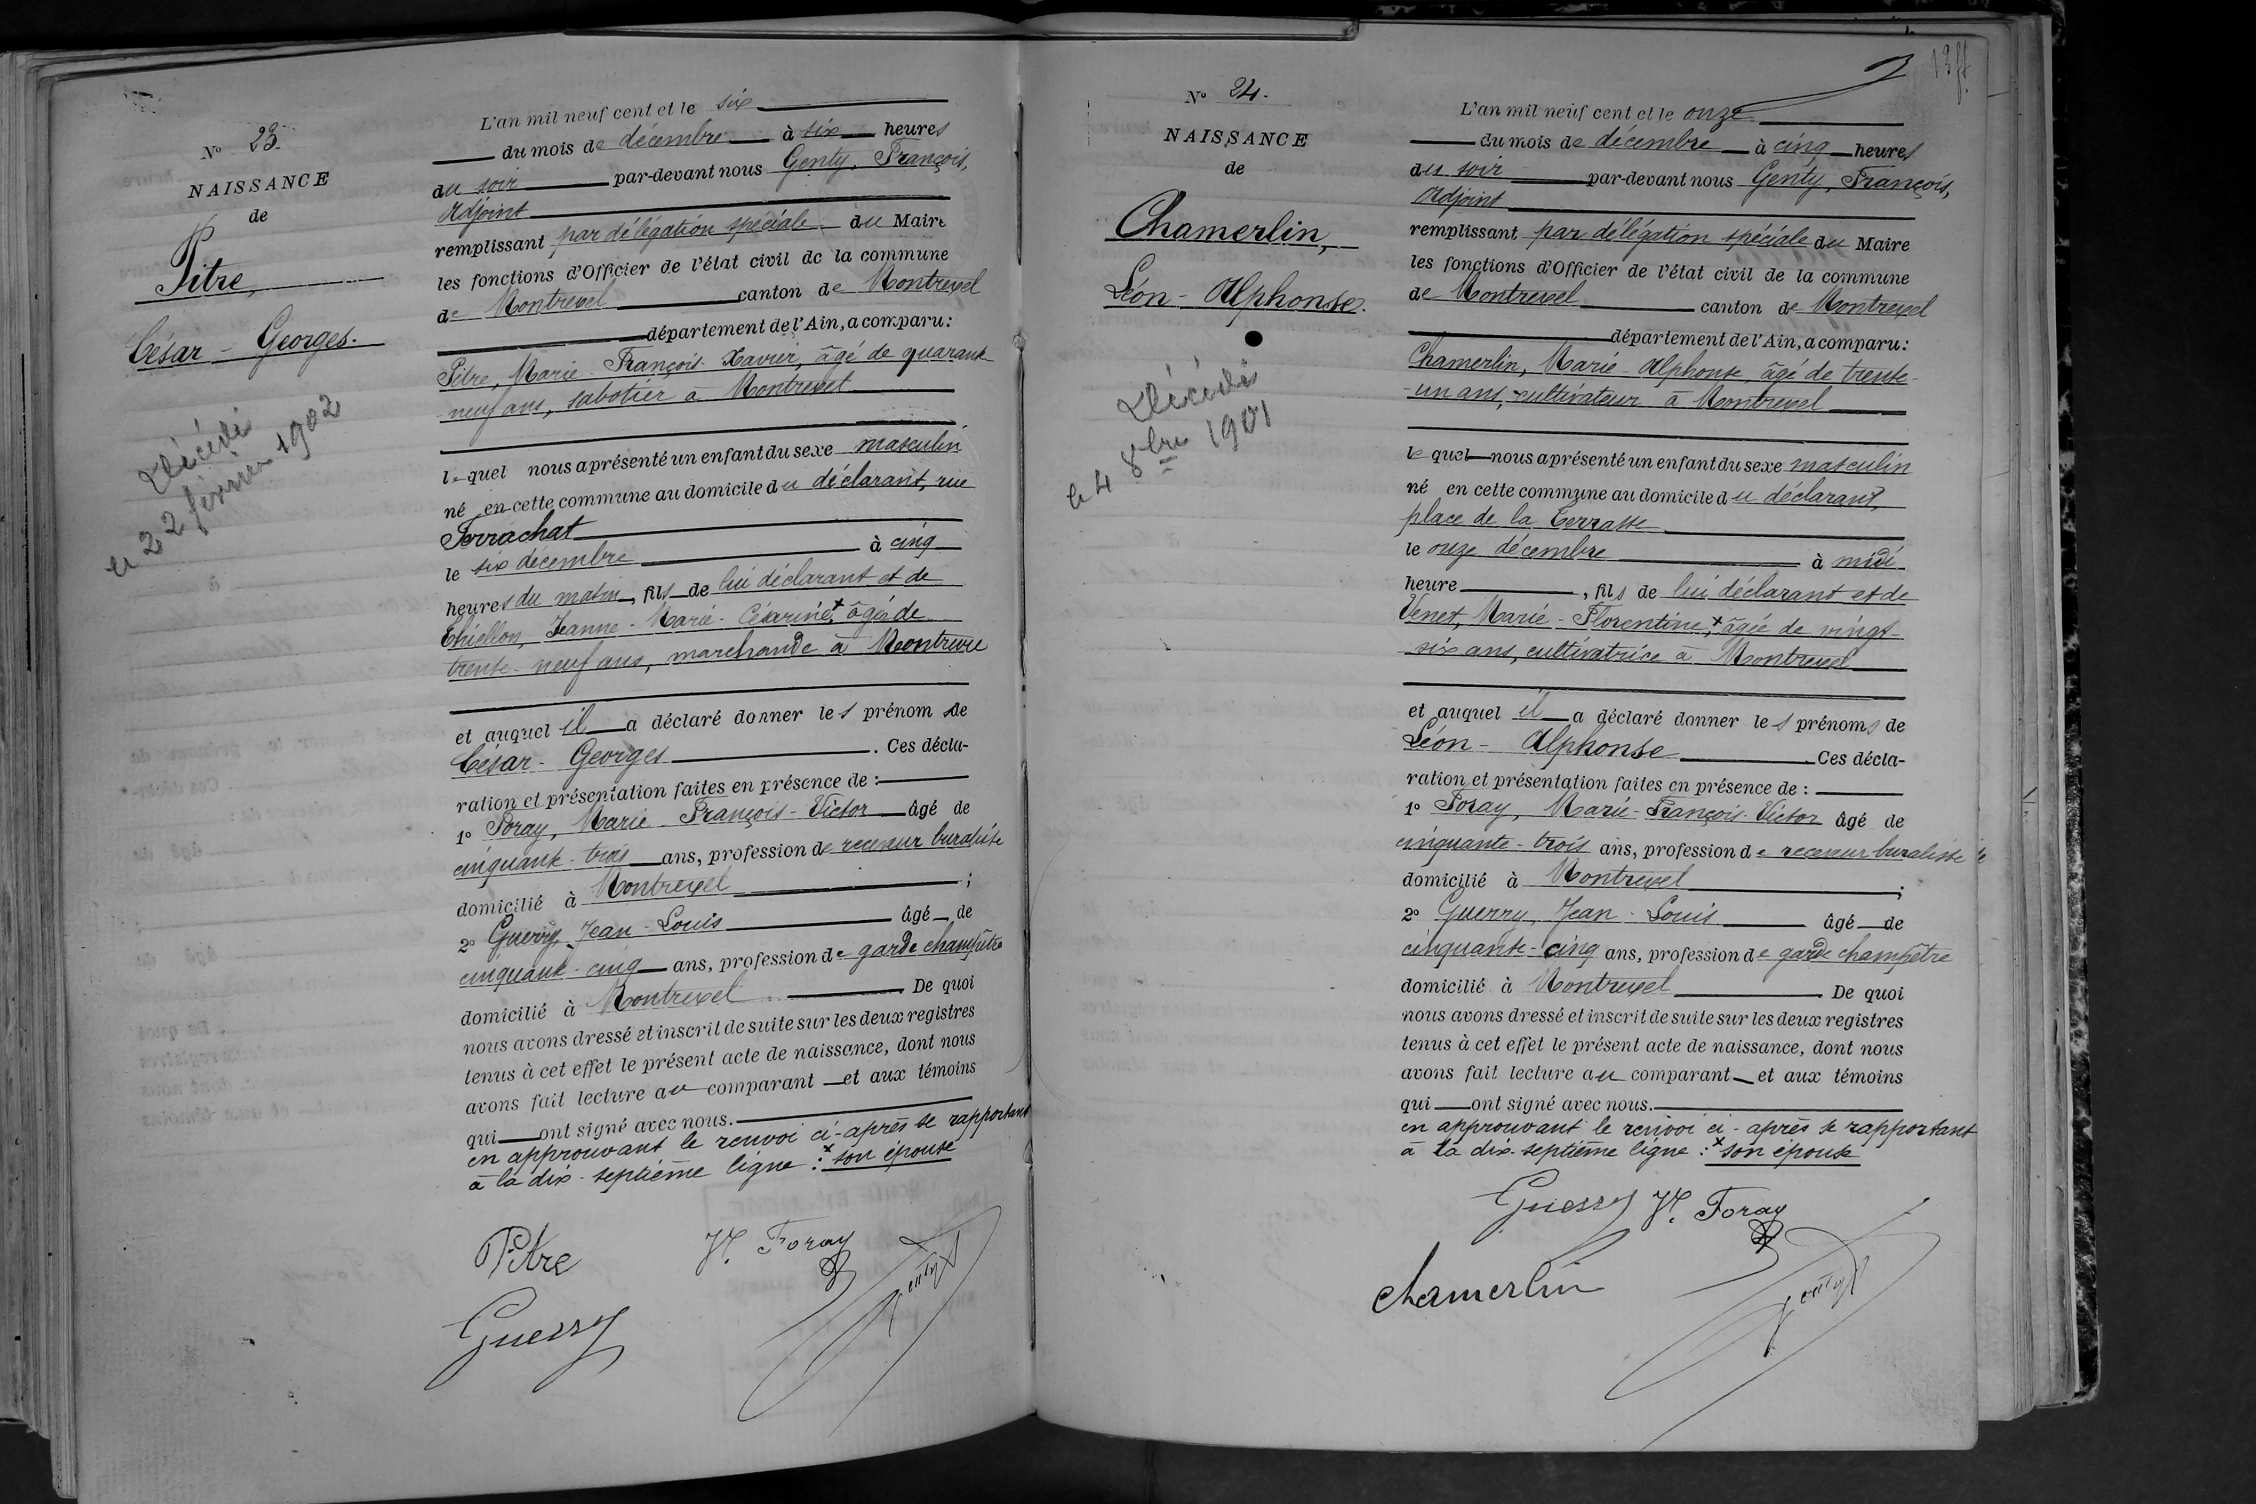 N° 23.
NAISSANCE
de
Pitre,
César - Georges.
Décédé
le 22 février 1902
L'an mil neuf cent et le six
du mois de décembre à six heures
du soir par-devant nous Genty, François,
Adjoint
remplissant par délégation spéciale du Maire
les fonctions d'Officier de l'état civil de la commune
de Montrevel canton de Montrevel
département de l'Ain, a comparu :
Pitre, Marie-François-Xavier, âgé de quarante
neuf ans, sabotier à Montrevel
lequel nous a présenté un enfant du sexe masculin
né en cette commune au domicile du déclarant, rue
Ferrachat
le six décembre à cinq
heures du matin, fils de lui déclarant et de
Jeanne-Marie-Césarine,x âgée de
trente-neuf ans, marchande à Montrevel
et auquel il a déclaré donner les prénoms de
César-Georges. Ces décla-
ration et présentation faites en présence de :
1° Foray, Marie François-Victor âgé de
cinquante-trois ans, profession de receveur buraliste
domicilié à Montrevel ;
2° Guerry, Jean-Louis âgé de
cinquante-cinq ans, profession de garde champêtre
domicilié à Montrevel De quoi
nous avons dressé et inscrit de suite sur les deux registres
tenus à cet effet le présent acte de naissance, dont nous
avons fait lecture au comparant et aux témoins
qui ont signé avec nous.
en approuvant le renvoi ci-après se rapportant
à la dix-septième ligne : x son épouse
Pitre Vr. Foray
Guerry Genty
13
N° 24.
NAISSANCE
de
Chamerlin,
Léon-Alphonse.
Décédé
le 4 8bre 1901
L'an mil neuf cent et le onze
du mois de décembre à cinq heures
du soir par-devant nous Genty, François,
Adjoint
remplissant par délégation spéciale du Maire
les fonctions d'Officier de l'état civil de la commune
de Montrevel canton de Montrevel
département de l'Ain, a comparu :
Chamerlin, Marie-Alphonse, âgé de trente-
-un ans, cultivateur à Montrevel
lequel nous a présenté un enfant du sexe masculin
né en cette commune au domicile du déclarant,
place de la Terrasse
le onze décembre à midi
heure , fils de lui déclarant et de
Venet, Marie-Florentine,x âgée de vingt-
six ans, cultivatrice à Montrevel
et auquel il a déclaré donner les prénoms de
Léon-Alphonse Ces décla-
ration et présentation faites en présence de :
1° Foray, Marie-François-Victor âgé de
cinquante-trois ans, profession de receveur buraliste
domicilié à Montrevel ;
2° Guerry, Jean-Louis âgé de
cinquante-cinq ans, profession de garde champêtre
domicilié à Montrevel De quoi
nous avons dressé et inscrit de suite sur les deux registres
tenus à cet effet le présent acte de naissance, dont nous
avons fait lecture au comparant et aux témoins
qui ont signé avec nous.
en approuvant le renvoi ci-après se rapportant
à la dix-septième ligne : x son épouse
Guerry Vr. Foray
Chamerlin Genty